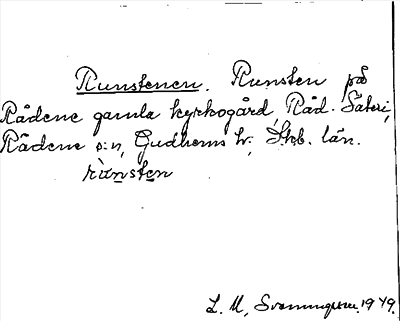 Runstenen. Runsten på
Rådene gamla kyrkogård, Råd. Säteri,
Rådene s:n, Gudhems hr., Skb. län.
runsten
L. M. Svanungsen. 1949.